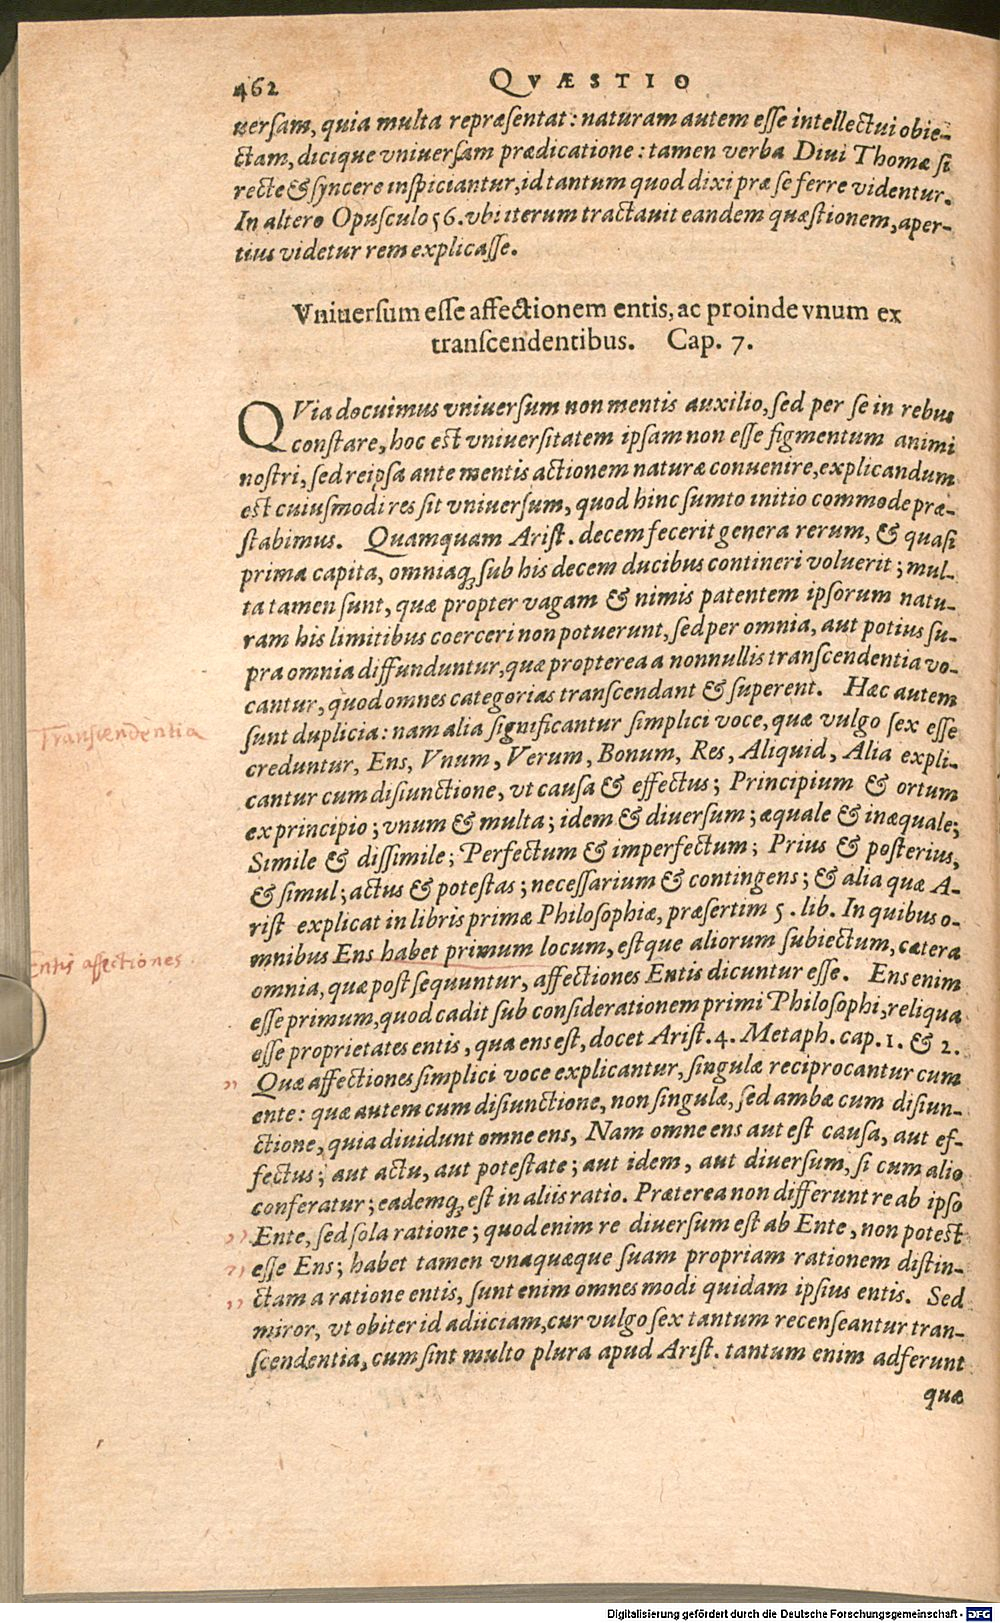 462 QVÆSTIO
uersam, quia multa repræſentat: naturam autem eſſe intellectui obie-
ctam, dicique vniuerſam prædicatione: tamen verba Diui Thomæ ſi
recte & ſyncere inſpiciantur, id tantum quod dixi præ ſe ferre videntur.
In altero Opuſculo 56. vbi iterum tractauit eandem quæſtionem, aper-
tius videtur rem explicaſſe.
Vniuerſum eſſe affectionem entis, ac proinde vnum ex
tranſcendentibus. Cap. 7.
QVia docuimus vniuerſum non mentis auxilio, ſed per ſe in rebus
conſtare, hoc est vniuerſitatem ipſam non eſſe figmentum animi
noſtri, ſed reipſa ante mentis actionem naturæ conuenire, explicandum
est cuiuſmodi res ſit vniuerſum, quod hinc ſumto initio commode præ-
ſtabimus. Quamquam Ariſt. decem fecerit genera rerum, & quaſi
prima capita, omniaq; ſub his decem ducibus contineri voluerit; mul-
ta tamen ſunt, quæ propter vagam & nimis patentem ipſorum natu-
ram his limitibus coerceri non potuerunt, ſed per omnia, aut potius ſu-
pra omnia diffunduntur, quæ propterea a nonnullis tranſcendentia vo-
cantur, quod omnes categorias tranſcendant & ſuperent. Hæc autem
Transcendentia
ſunt duplicia: nam alia ſignificantur ſimplici voce, quæ vulgo ſex eſſe
creduntur, Ens, Vnum, Verum, Bonum, Res, Aliquid, Alia expli-
cantur cum diſiunctione, vt cauſa & effectus; Principium & ortum
ex principio; vnum & multa; idem & diuerſum; æquale & inæquale;
Simile & diſſimile; Perfectum & imperfectum; Prius & poſterius,
& ſimul; actus & poteſtas; neceſſarium & contingens; & alia quæ A-
riſt explicat in libris primæ Philoſophiæ, præſertim 5. lib. In quibus o-
mnibus Ens habet primum locum, eſtque aliorum ſubiectum, cætera
Entis affectiones
omnia, quæ poſt ſequuntur, affectiones Entis dicuntur eſſe. Ens enim
eſſe primum, quod cadit ſub conſiderationem primi Philoſophi, reliqua
eſſe proprietates entis, qua ens est, docet Ariſt. 4. Metaph. cap. 1. & 2.
„ Quæ affectiones ſimplici voce explicantur, ſingulæ reciprocantur cum
ente: quæ autem cum diſiunctione, non ſingulæ, ſed ambæ cum diſiun-
ctione, quia diuidunt omne ens, Nam omne ens aut eſt cauſa, aut ef-
fectus; aut actu, aut poteſtate; aut idem, aut diuerſum, ſi cum alio
conferatur; eademq; eſt in aliis ratio. Præterea non differunt re ab ipſo
„ Ente, ſed ſola ratione; quod enim re diuerſum eſt ab Ente, non potest
„ eſſe Ens; habet tamen vnaquæque ſuam propriam rationem diſtin-
„ ctam a ratione entis, ſunt enim omnes modi quidam ipſius entis. Sed
miror, vt obiter id adiiciam, cur vulgo ſex tantum recenſeantur tran-
ſcendentia, cum ſint multo plura apud Ariſt. tantum enim adferunt
quæ
Digitalisierung gefördert durch die Deutsche Forschungsgemeinschaft - DFG